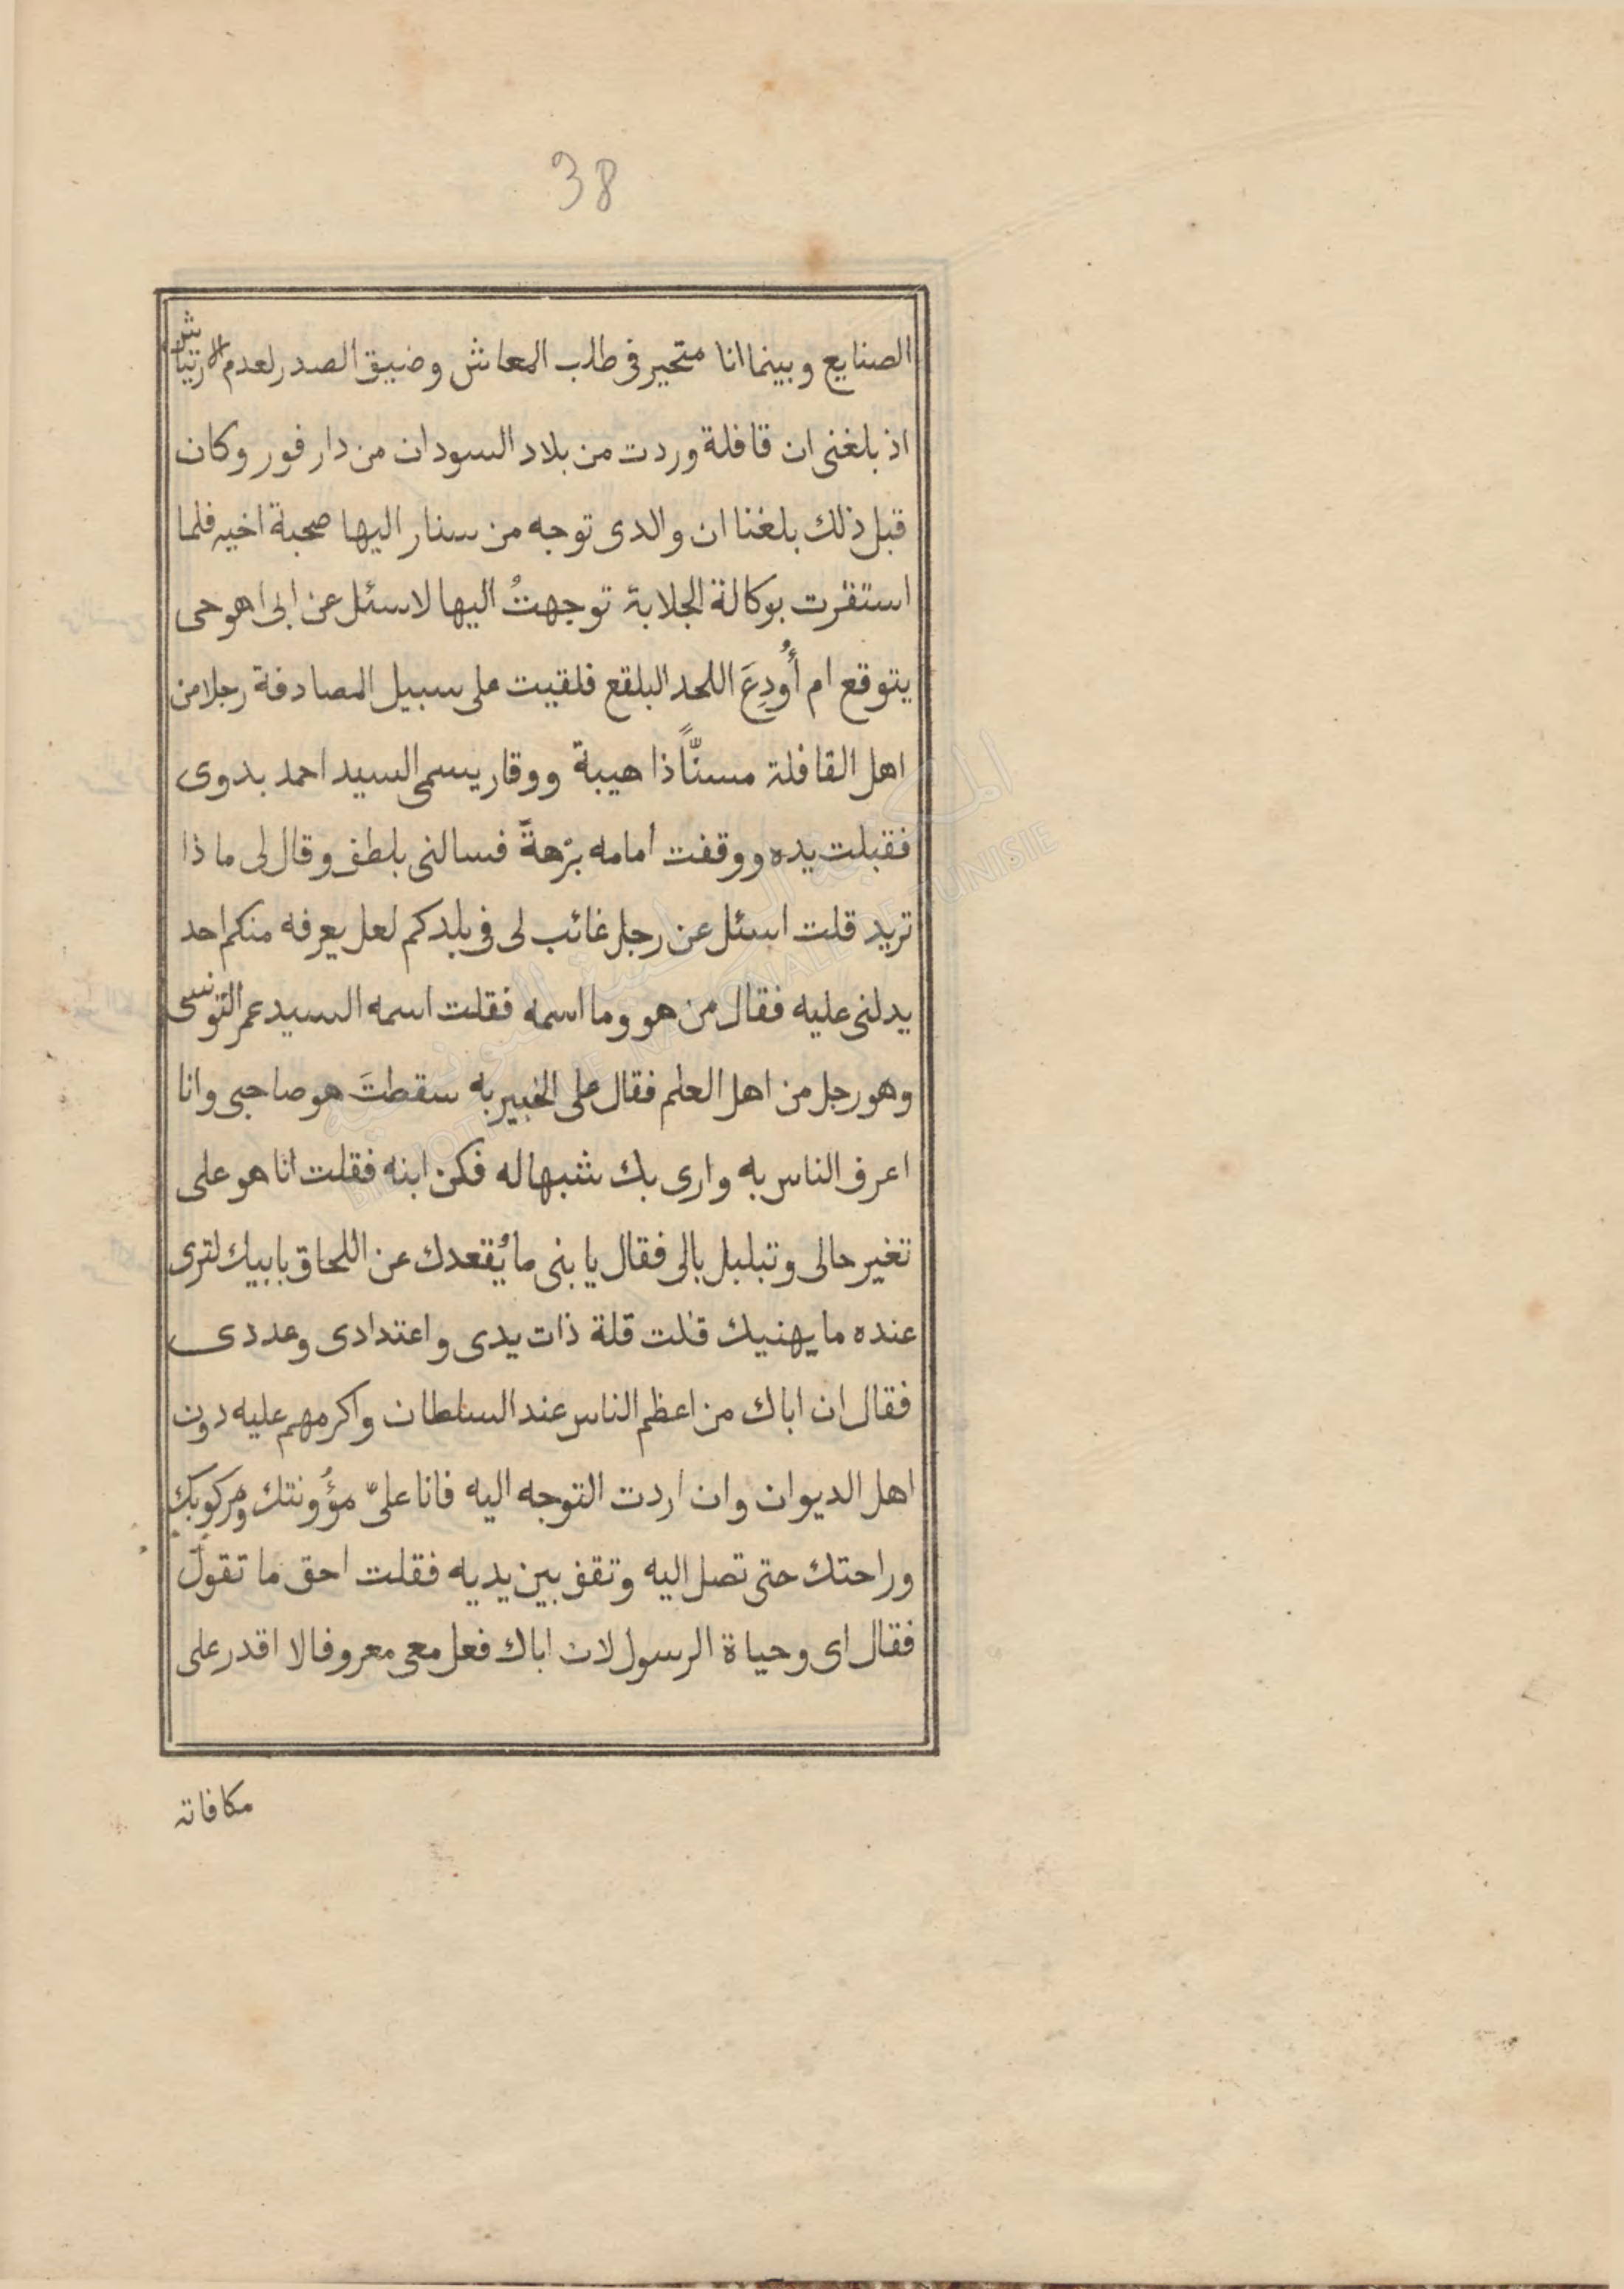 38
الصنايع وبينما انا متحير فى طلب المعاش وضيق الصدر لعدم الارتياش
اذ بلغنى ان قافلة وردت من بلاد السودان من دار فور وكان
قبل ذلك بلغنا ان والدى توجه من سنار اليها صحبة اخيه فلما
استقرت بوكالة الجلابة توجهتُ اليها لاسئل عن ابى اهو حى
يتوقع ام أُودِعَ اللحد البلقع فلقيت على سبيل المصادفة رجلا من
اهل القافلة مسنّاً ذا هيبة ووقار يسمى السيد احمد بدوى
فقبلت يده ووقفت امامه بُرْهةً فسالنى بلطف وقال لى ما ذا
تريد قلت اسئل عن رجل غائب لى فى بلدكم لعل يعرفه منكم احد
يدلنى عليه فقال من هو وما اسمه فقلت اسمه السيد عمر التونسى
وهو رجل من اهل العلم فقال على الخبير به سقطتَ هو صاحبى وانا
اعرف الناس به وارى بك شبها له فكن ابنه فقلت انا هو على
تغير حالى وتبلبل بالى فقال يا بنى ما يُقعدك عن اللحاق بابيك لترى
عنده ما يهنيك قلت قلة ذات يدى واعتدادى وعددى
فقال ان اباك من اعظم الناس عند السلطان واكرمهم عليه دون
اهل الديوان وان اردت التوجه اليه فانا علىّ مؤُونتك ومركوبك
وراحتك حتى تصل اليه وتقف بين يديه فقلت احق ما تقول
فقال اى وحياة الرسول لان اباك فعل معى معروفا لا اقدر على
مكافاته
المكتبة الوطنية التونسية
BIBLIOTHEQUE NATIONALE DE TUNISIE